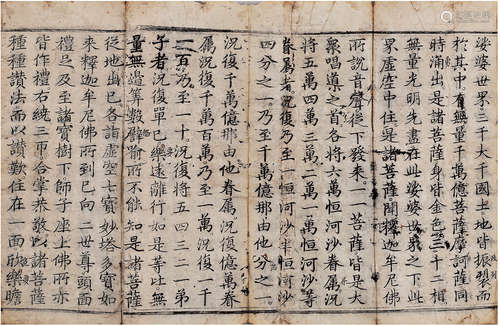 娑婆世界三千大千國土地皆振裂而
於其中有無量千萬億菩薩摩訶薩同
時涌出是諸菩薩身皆金色三十二相
無量光明先盡在此娑婆世界之下此
界虛空中住是諸菩薩聞釋迦牟尼佛
所說音聲從下發來一一菩薩皆是大
衆唱導之首各將六萬恒河沙眷屬况
將五萬四萬三萬二萬一萬恒河沙等
眷屬者况復乃至一恒河沙半恒河沙
四分之一乃至千萬億那由他分之一
况復千萬億那由他眷屬况復億萬眷
屬况復千萬百萬乃至一萬况復一千
一百乃至一十况復將五四三二一弟
子者况復單巳樂遠離行如是等比無
量無邊算數譬喻所不能知是諸菩薩
從地出巳各詣虛空七寶妙塔多寶如
來釋迦牟尼佛所到巳向二世尊頭面
禮足及至諸寶樹下師子座上佛所亦
皆作禮右繞三帀合掌恭敬以諸菩薩
種種讃法而以讃歎住在一面欣樂瞻